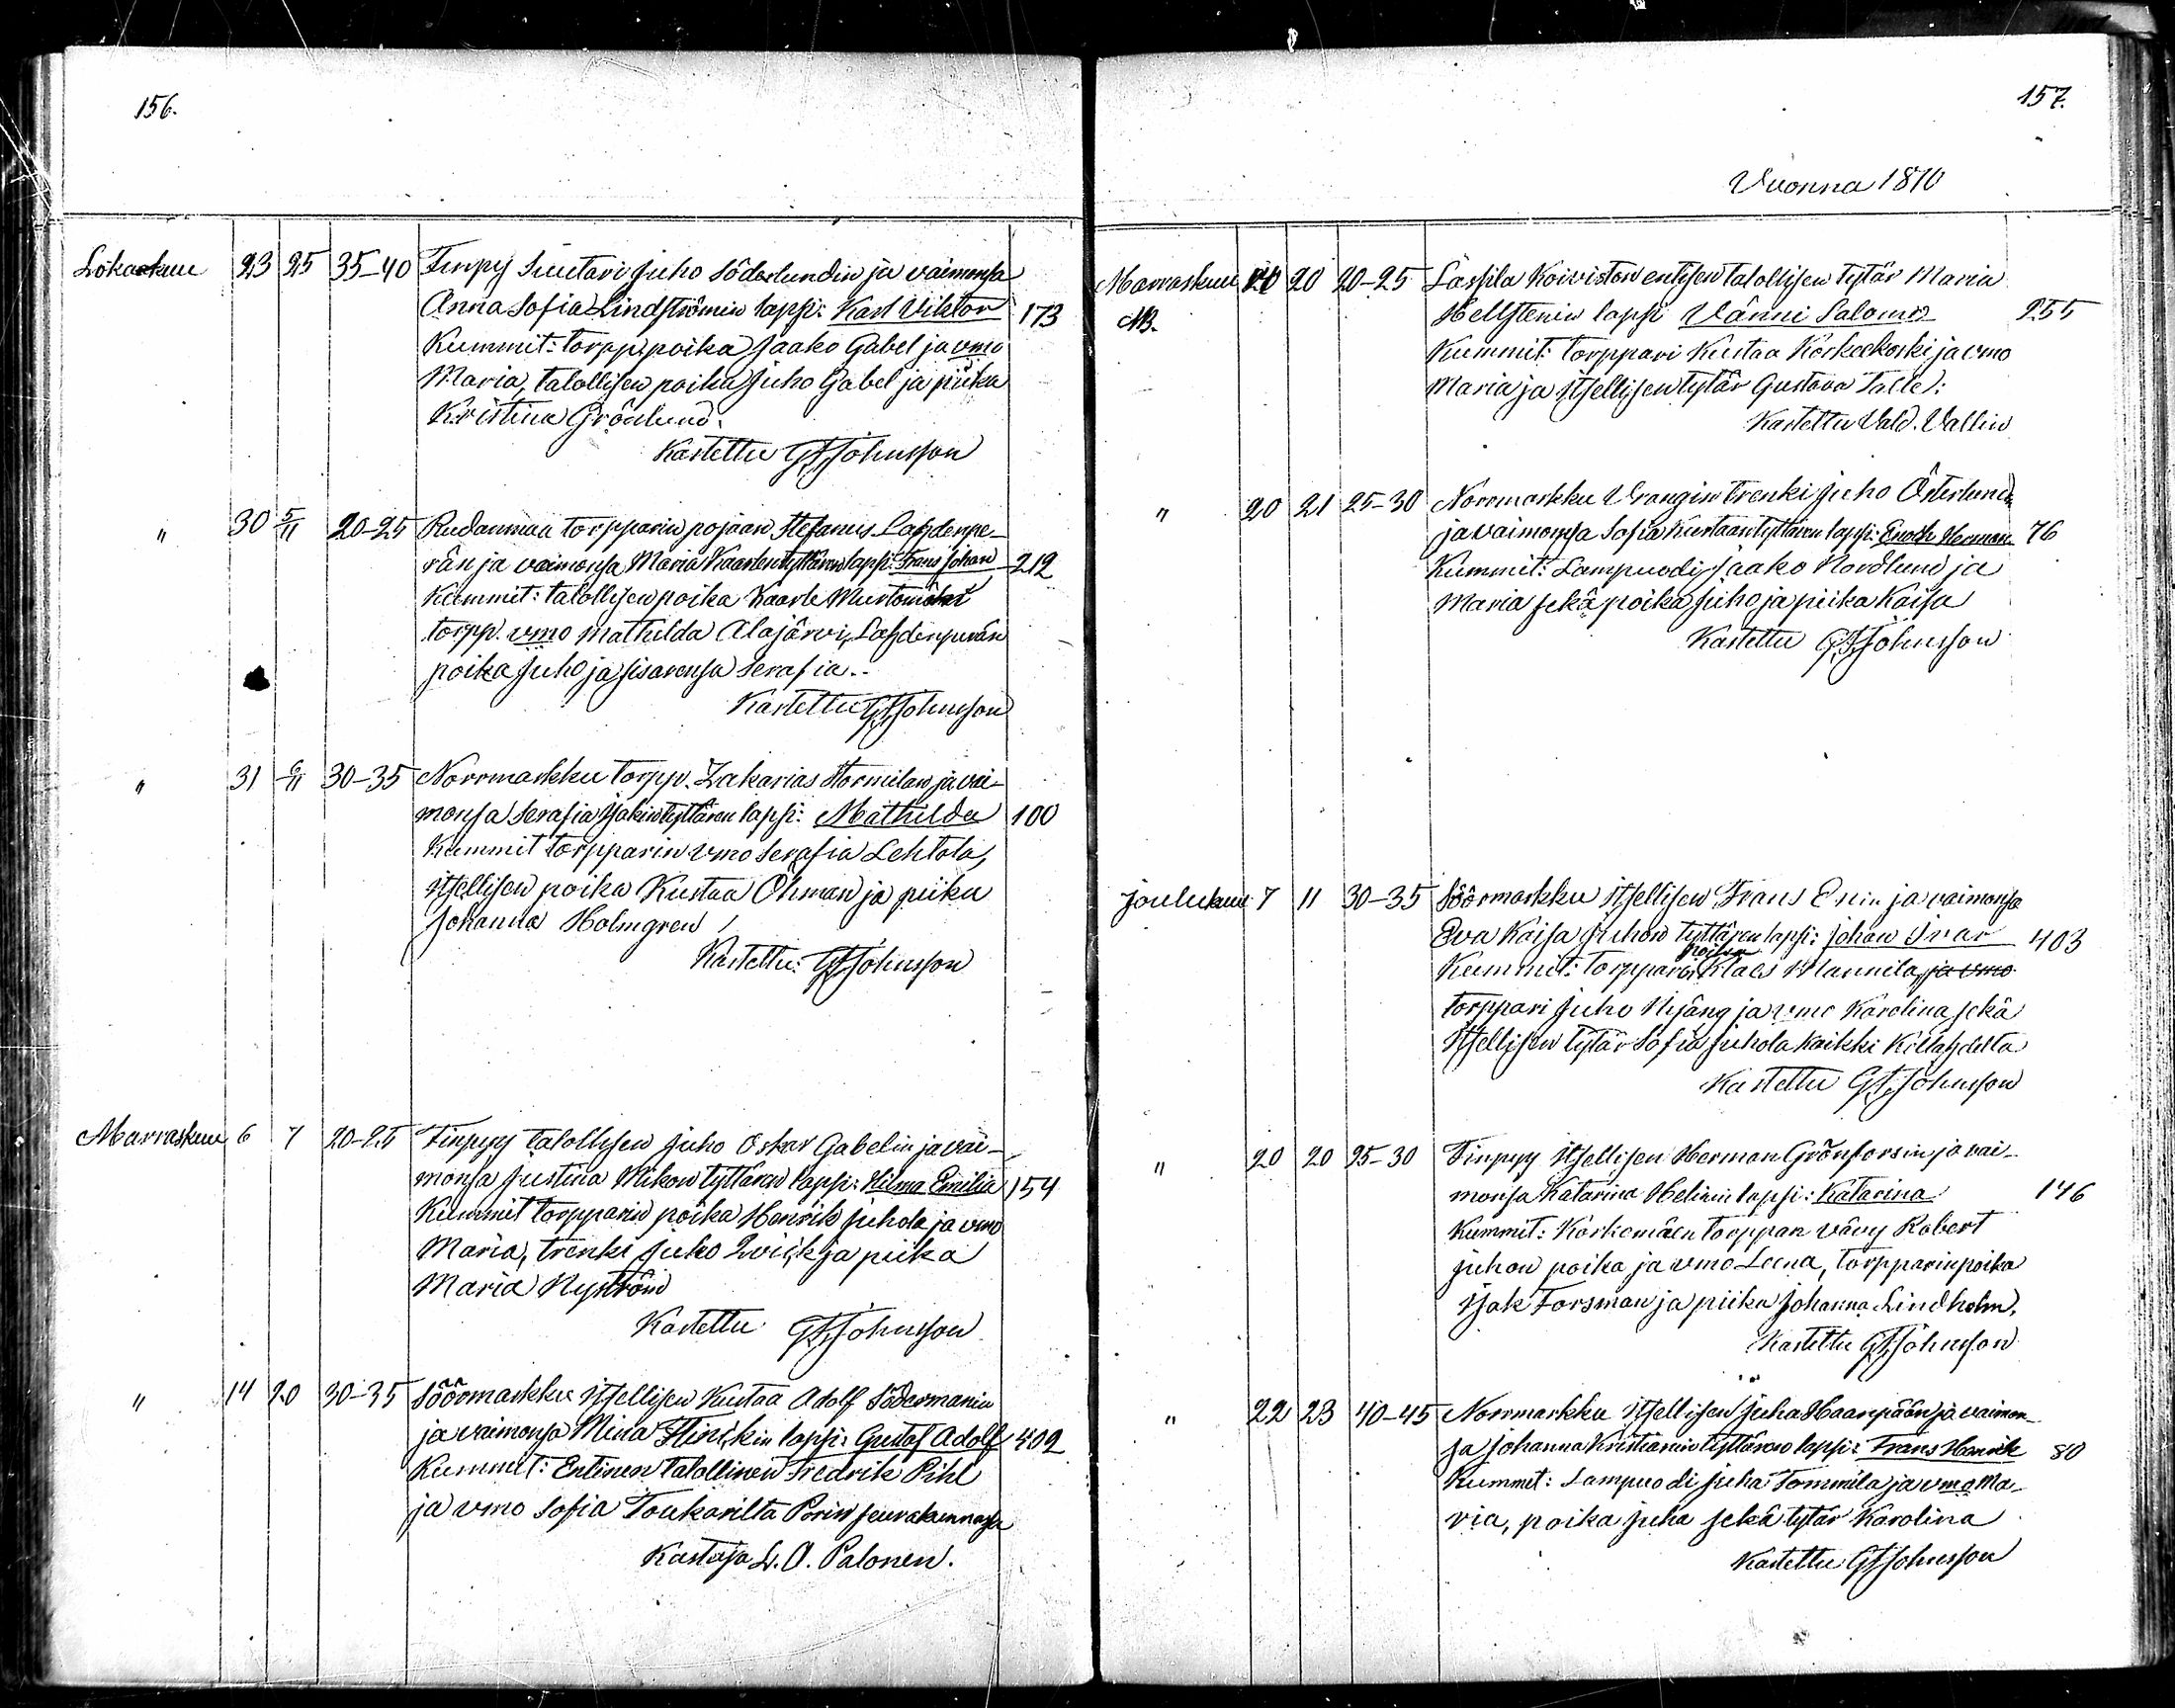 156.
Lokakuu 23 25 35-40 Finpyy Suutari Juho Söderlundin ja vaimonsa
Anna Sofia Lindströmin lapsi: Karl Viktor 173
Kummit: torpp. poika Jaako Gabel ja vmo
Maria, talollisen poika Juho Gabel ja piika
Kristina Grönlund.
Kastettu G. F. Johnsson
" 30 5/11 20-25 Rudanmaa torpparin pojan Stefanus Lahdenpe-
rän ja vaimonsa Maria Kaarlentyttären lapsi: Frans Johan 212
Kummit: talollisen poika Kaarle Murtomäki
torpp. vmo Mathilda Alajärvi, Lahdenperän
poika Juho ja sisarensa Serafia.
Kastettu G. F. Johnsson
" 31 6/11 30-35 Norrmarkku torpp. Zakarias Stormilan ja vai-
monsa Serafia Isakintyttären lapsi: Mathilda 100
Kummit torpparin vmo Serafia Lehtola,
itsellisen poika Kustaa Öhman ja piika
Johanna Holmgren
Kastettu: G. F. Johnsson
Marraskuu 6 7 20-25 Finpyy talollisen Juho Oskar Gabelin ja vai-
monsa Justina Mikon tyttären lapsi: Hilma Emilia 154
Kummit torpparin poika Henrik Juhola ja vmo
Maria, trenki Juho Qvick ja piika
Maria Nyström
Kastettu G. F. Johnsson
" 14 20 30-35 Söörmarkku itsellisen Kustaa Adolf Södermanin
ja vaimonsa Mina Flinckin lapsi: Gustaf Adolf 402
Kummit: Entinen talollinen Fredrik Pihl
ja vmo Sofia Toukarilta Porin seurakunnassa
Kastaja L. O. Palonen.
157.
Vuonna 1870
Marraskuu 20 20-25 Lassila Koiviston entisen talollisen tytär Maria
NB. Hellstenin lapsi Vänni Salomo 255
Kummit: torppari Kustaa Korkeekoski ja vmo
Maria ja itsellisen tytär Gustava Talle:
Kastettu Vald. Vallin
" 20 21 25-30 Norrmarkku Vrangin trenki Juho Österlundin
ja vaimonsa Sofia Kustaantyttären lapsi: Enoch Herman 76
Kummit: Lampuodi Jaako Nordlund ja
Maria sekä poika Juho ja piika Kaisa
Kastettu G. F. Johnsson
Joulukuu 7 11 30-35 Söörmarkku itsellisen Frans ja vaimonsa
Eva Kaisa Juhon tyttären lapsi: Johan Ivar 403
poika
Kummit: torpparin Klaes Mannila, ja vmo
torppari Juho Nysäng ja vmo Karolina sekä
itsellisen tytär Sofia Juhola kaikki Kellahdelta
Kastettu G. F. Johnsson
" 20 20 25-30 Finpyy itsellisen Herman Grönforsin ja vai-
monsa Katarina Helinin lapsi: Katarina 146
Kummit: Korkiomäen torppan vävy Robert
Juhon poika ja vmo Leena, torpparinpoika
Isak Forsman ja piika Johanna Lindholm.
Kastettu G. F. Johnsson
" 22 23 40-45 Norrmarkku itsellisen Juha Haanpään ja vaimon-
sa Johanna Kristianin tyttären lapsi: Frans Henrik 80
Kummit: Lampuodi Juha Tommila ja vmo Ma-
ria, poika Juha sekä tytär Karolina
Kastettu G. F. Johnsson